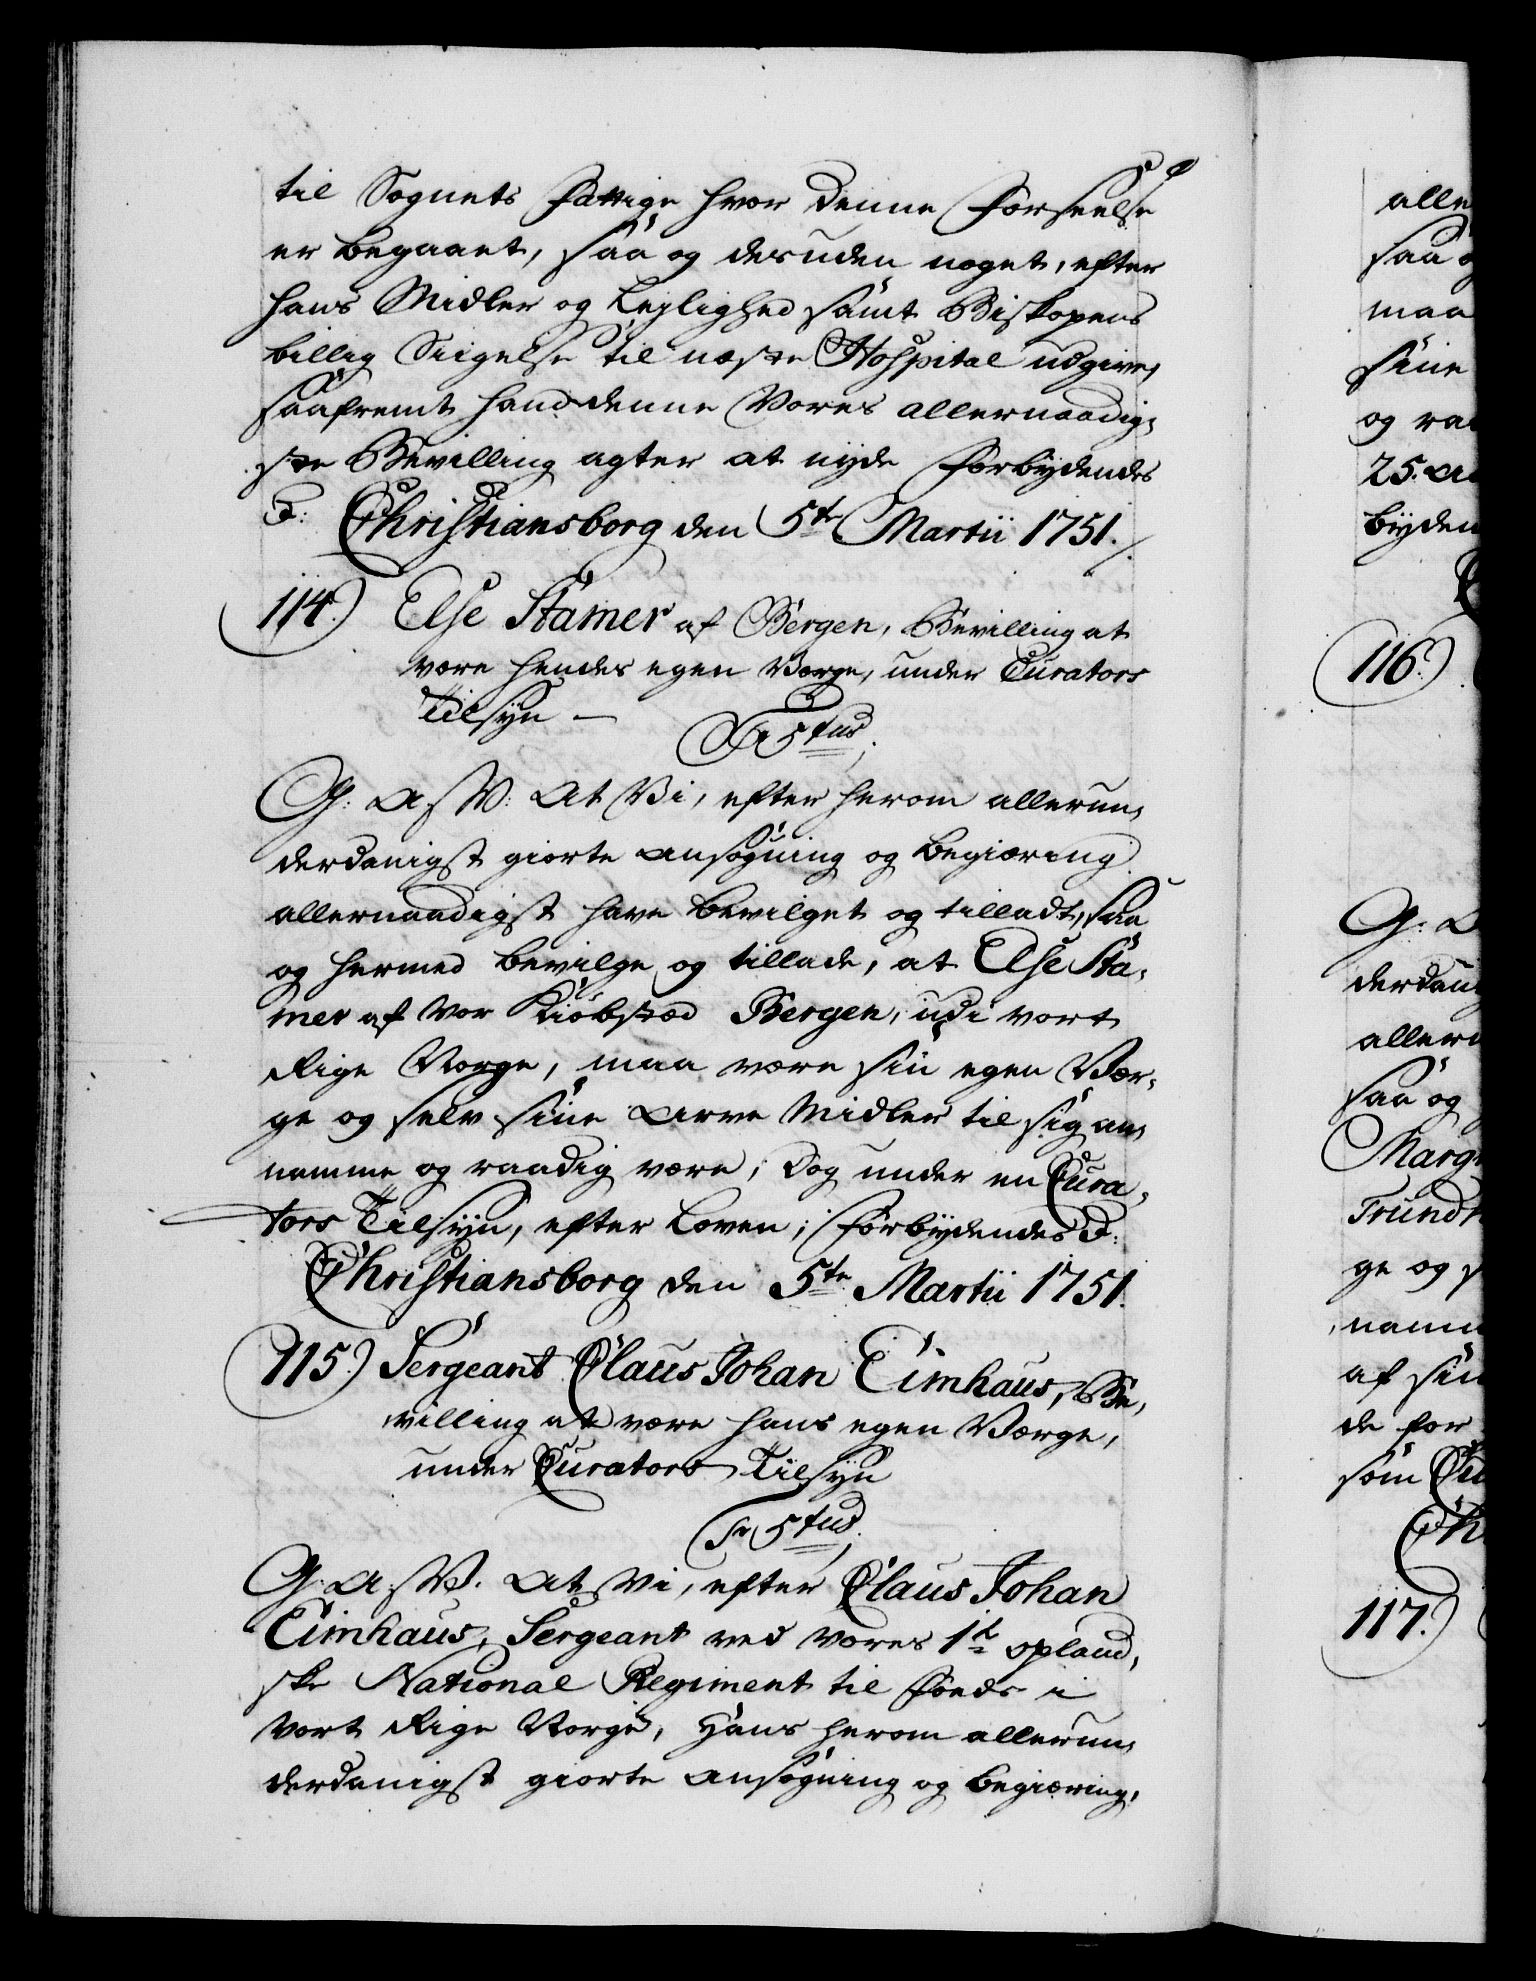 til Sognets Fattige hvor denne Forseelse
er begaaet, saa og desuden noget, efter
hans Midler og Leylighed samt Biskopens
billig Siigelse til næste Hospital udgive,
saafremt hand denne Vores allernaadig-
ste Bevilling agter at nyde Forbydendes
&: Christiansborg den 5te Martii 1751./
114.) Else Stamer af Bergen, Bevilling at
være hendes egen Værge, under Curators
Tilsyn —
Fr 5tus.
G: A: W: At Vi, efter herom allerun-
derdanigst giorte Ansøgning og Begiæring
allernaadigst have bevilget og tilladt, saa
og hermed bevilge og tillade, at Else Sta-
mer af Vor Kiøbsted Bergen, udi vort
Rige Norge, maa være sin egen Vær-
ge og selv sine Arve Midler til sig an-
namme og raadig være; Dog under en Cura-
tors Tilsyn, efter Loven; Forbydendes &:
Christiansborg den 5te Martii 1751.
115.) Sergeant Claus Johan Eimhaus, Be-
villing at være hans egen Værge,
under Curators Tilsyn
Fr 5tus.
G: A: W. At Vi, efter Claus Johan
Eimhaus, Sergeant ved Vores 1te opland-
ske National Regiment til Foeds i
Vort Rige Norge, Hans herom allerun-
derdanigst giorte Ansøgning og Begiæring,
alle
saa
maa
sine
og
25.
byden
116.)
G:
derdan
allern
saa og
Marg
Trund
ge og
namm
af sin
de for
som
117.)